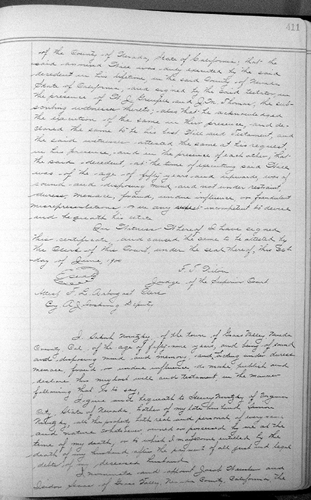 411
of the County of Nevada, State of California; that the
said annexed Will was duly executed by the said
decedent in his lifetime, in the said County of Nevada
State of California, and signed by the said testator, in
the presence of and Thomas, the sub-
scribing witnesses thereto; also that he acknowledged
the execution of the same in their presence, and de-
clared the same to be his last Will and Testament, and
the said witnesses attested the same at his request,
in his presence, and in the presence of each other; that
the said decedent, at the time of executing said Will
was of the age of fifty years and upwards, was of
sound and disposing mind, and not under restraint,
duress, menace, fraud, undue influence or fraudulent
misrepresentations, or in any respect incompetent to devise
and bequeath his estate.
In Witness Whereof I have signed
this certificate, and caused the same to be attested by
the Clerk of this Court, under the seal thereof, this
day of June, 190
F. T. Nilon
Judge of the Superior Court
Attest, F. L. Clerk
By A. J. Deputy
I, of the town of Grass Valley, Nevada
County, Cal. of the age of years, and being of sound
and disposing mind and memory, and not acting under duress
menace, fraud, or undue influence do make publish and
declare this my last will and testament in the manner
following that is to say:
I give and bequeath to Henry of Virginia
City, State of Nevada, brother of my late husband
all the property both real and personal of every name
and nature whatsoever owned or possessed by me at the
time of my death, or to which I am entitled by the
death of my husband, after the payment of all just and legal
debts of my deceased husband.
I nominate and appoint Jacob and
of Grass Valley, Nevada County, California, the